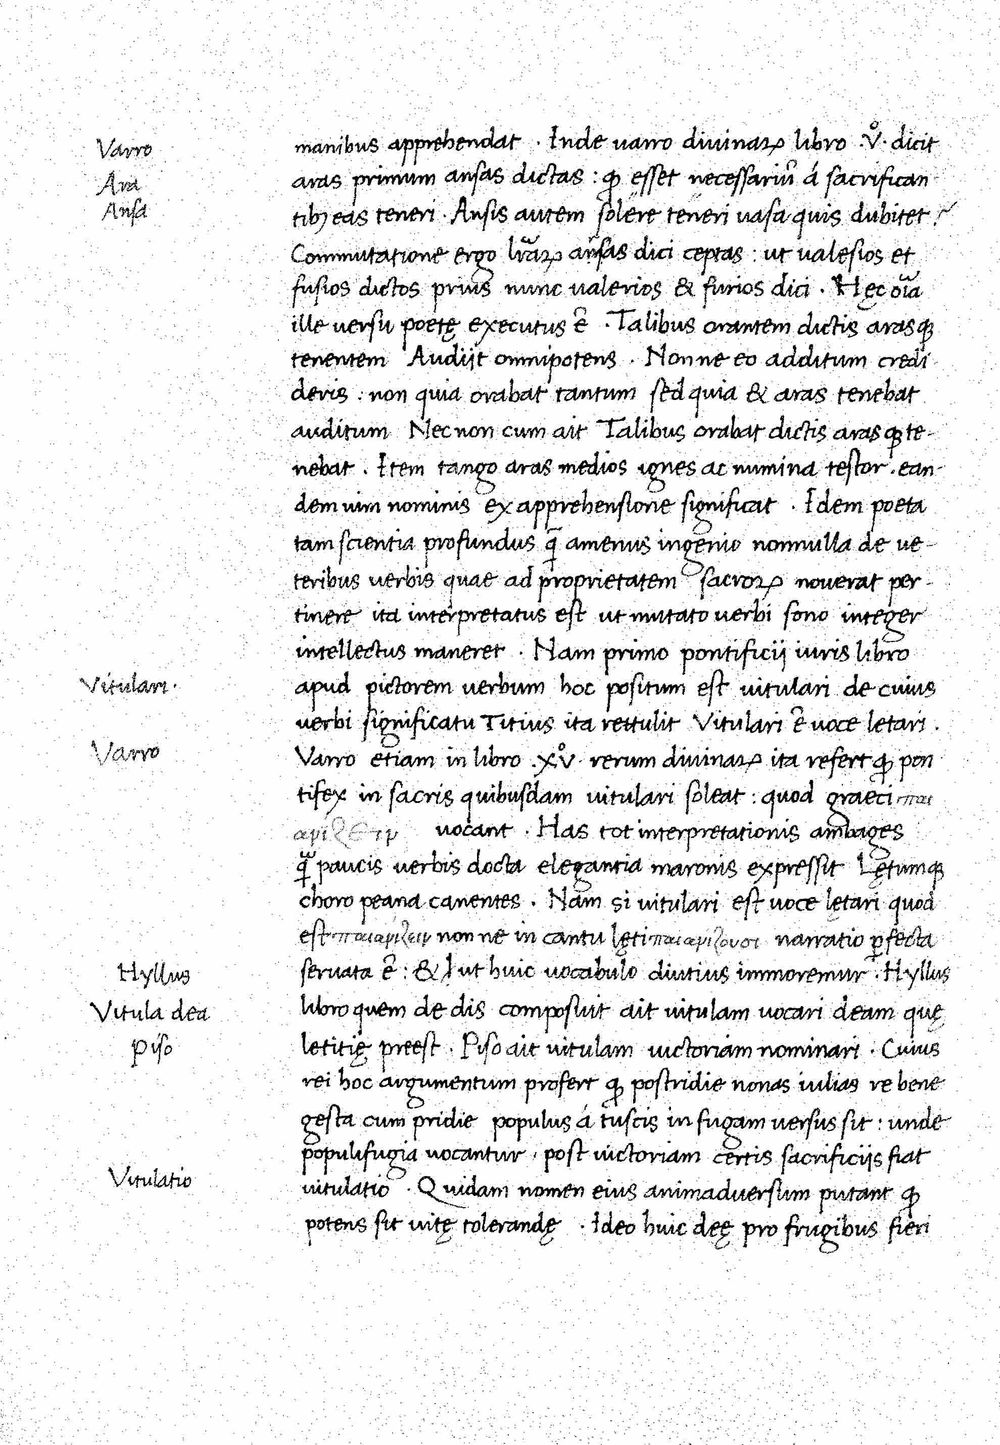 Varro
Ara
Ansa
manibus apprehendat · Inde uarro diuinaꝝ libro ·V̊· dicit
aras primum ansas dictas : ꝙ esset necessariũ á sacrifican
tibꝫ eas teneri · Ansis autem solere teneri uasa quis dubitet?
Commutatione ergo lr̃aꝝ ansas dici ceptas : ut ualesios et
fusios dictos prius nunc ualerios & furios dici · Hęc oĩa
ille uersu poetę executus ẽ · Talibus orantem dictis arasqꝫ
tenentem Audijt omnipotens · Nonne eo additum credi
deris : non quia orabat tantum sed quia & aras tenebat
auditum Nec non cum ait Talibus orabat dictis aras qꝫ te-
nebat . Item tango aras medios ignes ac numina testor . ean-
dem uim nominis ex apprehensione significat · Idem poeta
tam scientia profundus q̃ amenus ingenio nonnulla de ue-
teribus uerbis quae ad proprietatem sacroꝝ nouerat per-
tinere ita interpretatus est ut mutato uerbi sono integer
intellectus maneret · Nam primo pontificij iuris libro
Vitulari·
apud pictorem uerbum hoc positum est uitulari de cuius
uerbi significatu Titius ita rettulit Vitulari ẽ uoce letari .
Varro
Varro etiam in libro .xv̊· rerum diuinaꝝ ita refert ꝙ pon
tifex in sacris quibusdam uitulari soleat : quod graeci παι
ανίζειν uocant · Has tot interpretationis ambages
q̃ paucis uerbis docta elegantia maronis expressit Lętumqꝫ
choro peana canentes . Nam si uitulari est uoce lętari quod
est παιανίζειν non ne in cantu lęti παιανίζουσι narratio ꝑfecta
seruata ẽ : & ut huic uocabulo diutius immoremur · Hyllus
Hyllus
Vitula dea
libro quem de dis composuit ait uitulam uocari deam quę
Piso
letitię preest · Piso ait uitulam uictoriam nominari · Cuius
rei hoc argumentum profert ꝙ postridie nonas iulias re bene
gesta cum pridie populus á tuscis in fugam uersus sit : unde
populifugia uocantur · post uictoriam certis sacrificijs fiat
Vitulatio
uitulatio · Quidam nomen eius animaduersum putant ꝙ
potens sit uitę tolerandę · Ideo huic deę pro frugibus fieri